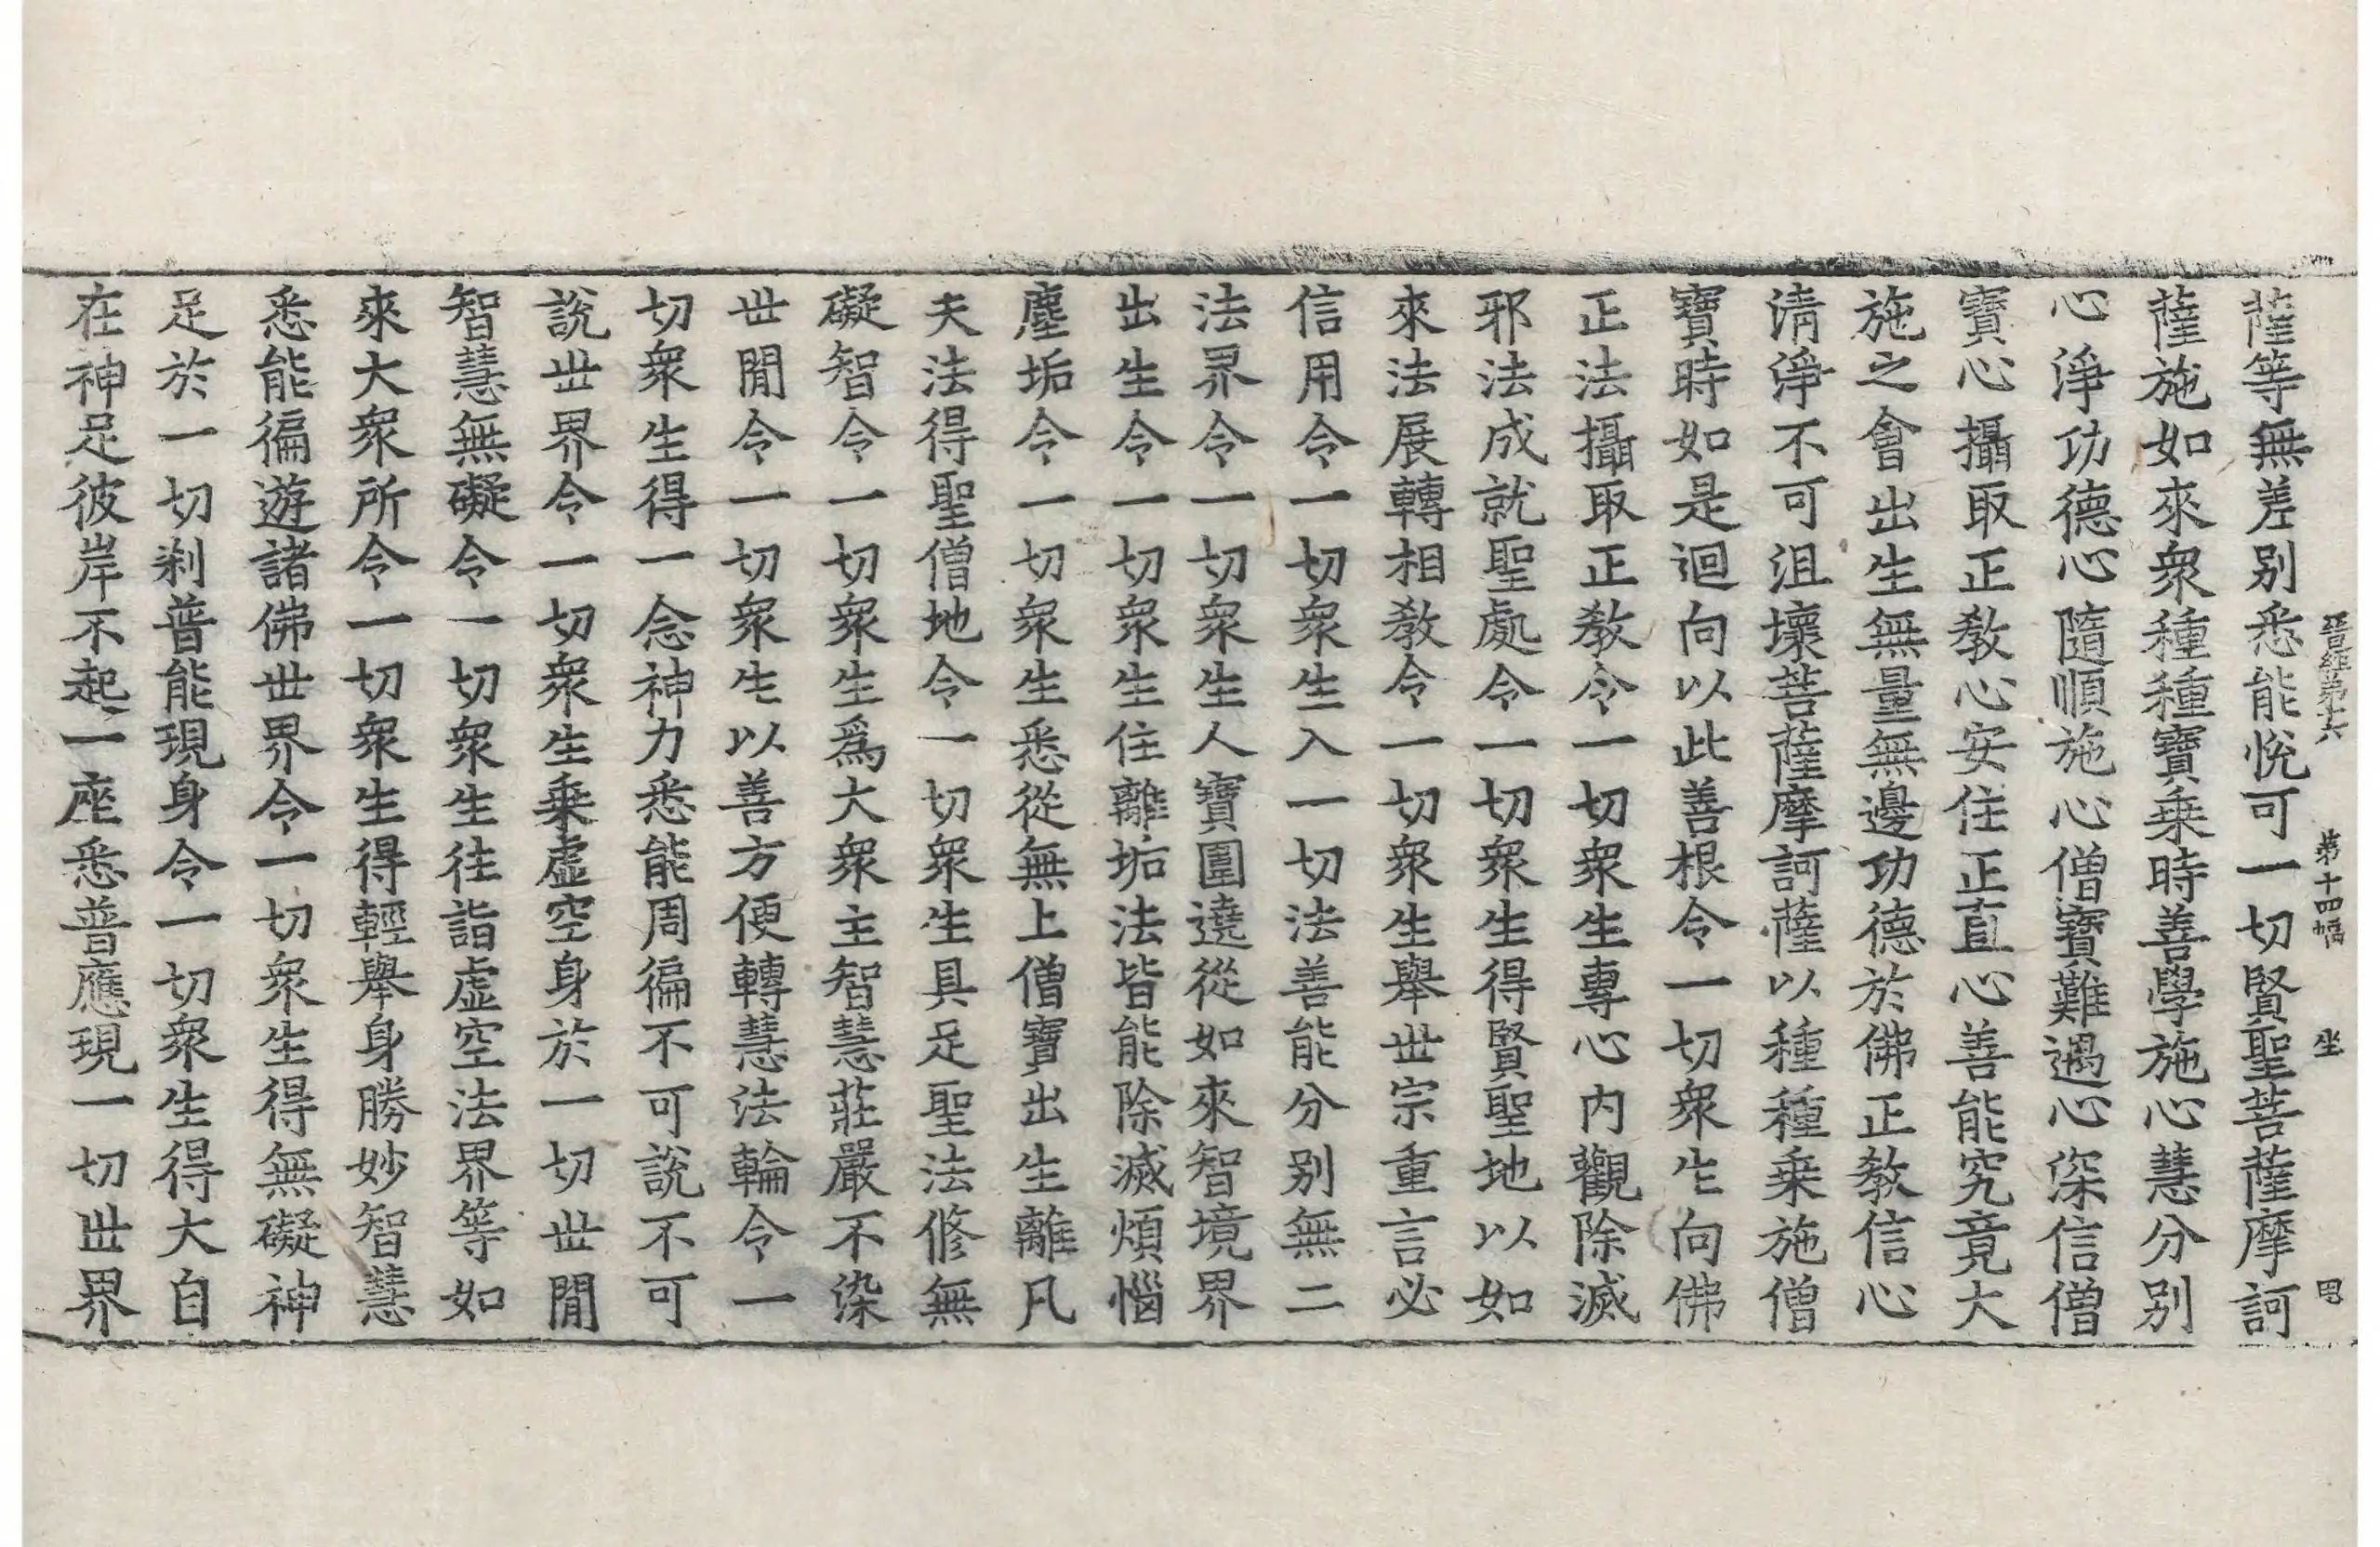 晉經第十六 第十四幅 坐 四
薩等無差別悉能悅可一切賢聖菩薩摩訶
薩施如來衆種種寶乗時善學施心慧分別
心淨功德心隨順施心僧寶難遇心深信僧
寶心攝取正教心安住正直心善能究竟大
施之會出生無量無邊功德於佛正教信心
清淨不可沮壞菩薩摩訶薩以種種乗施僧
寶時如是迴向以此善根令一切衆生向佛
正法攝取正教令一切衆生專心内觀除滅
邪法成就聖處令一切衆生得賢聖地以如
來法展轉相教令一切衆生舉世宗重言必
信用令一切衆生入一切法善能分別無二
法界令一切衆生人寶圍遶從如來智境界
出生令一切衆生住離垢法皆能除滅煩惱
塵垢令一切衆生悉從無上僧寶出生離凡
夫法得聖僧地令一切衆生具足聖法修無
礙智令一切衆生爲大衆主智慧莊嚴不染
世閒令一切衆生以善方便轉慧法輪令一
切衆生得一念神力悉能周徧不可說不可
說世界令一切衆生乗虛空身於一切世閒
智慧無礙令一切衆生往詣虛空法界等如
來大衆所令一切衆生得輕舉身勝妙智慧
悉能徧遊諸佛世界令一切衆生得無礙神
足於一切刹普能現身令一切衆生得大自
在神足彼岸不起一座悉普應現一切世界